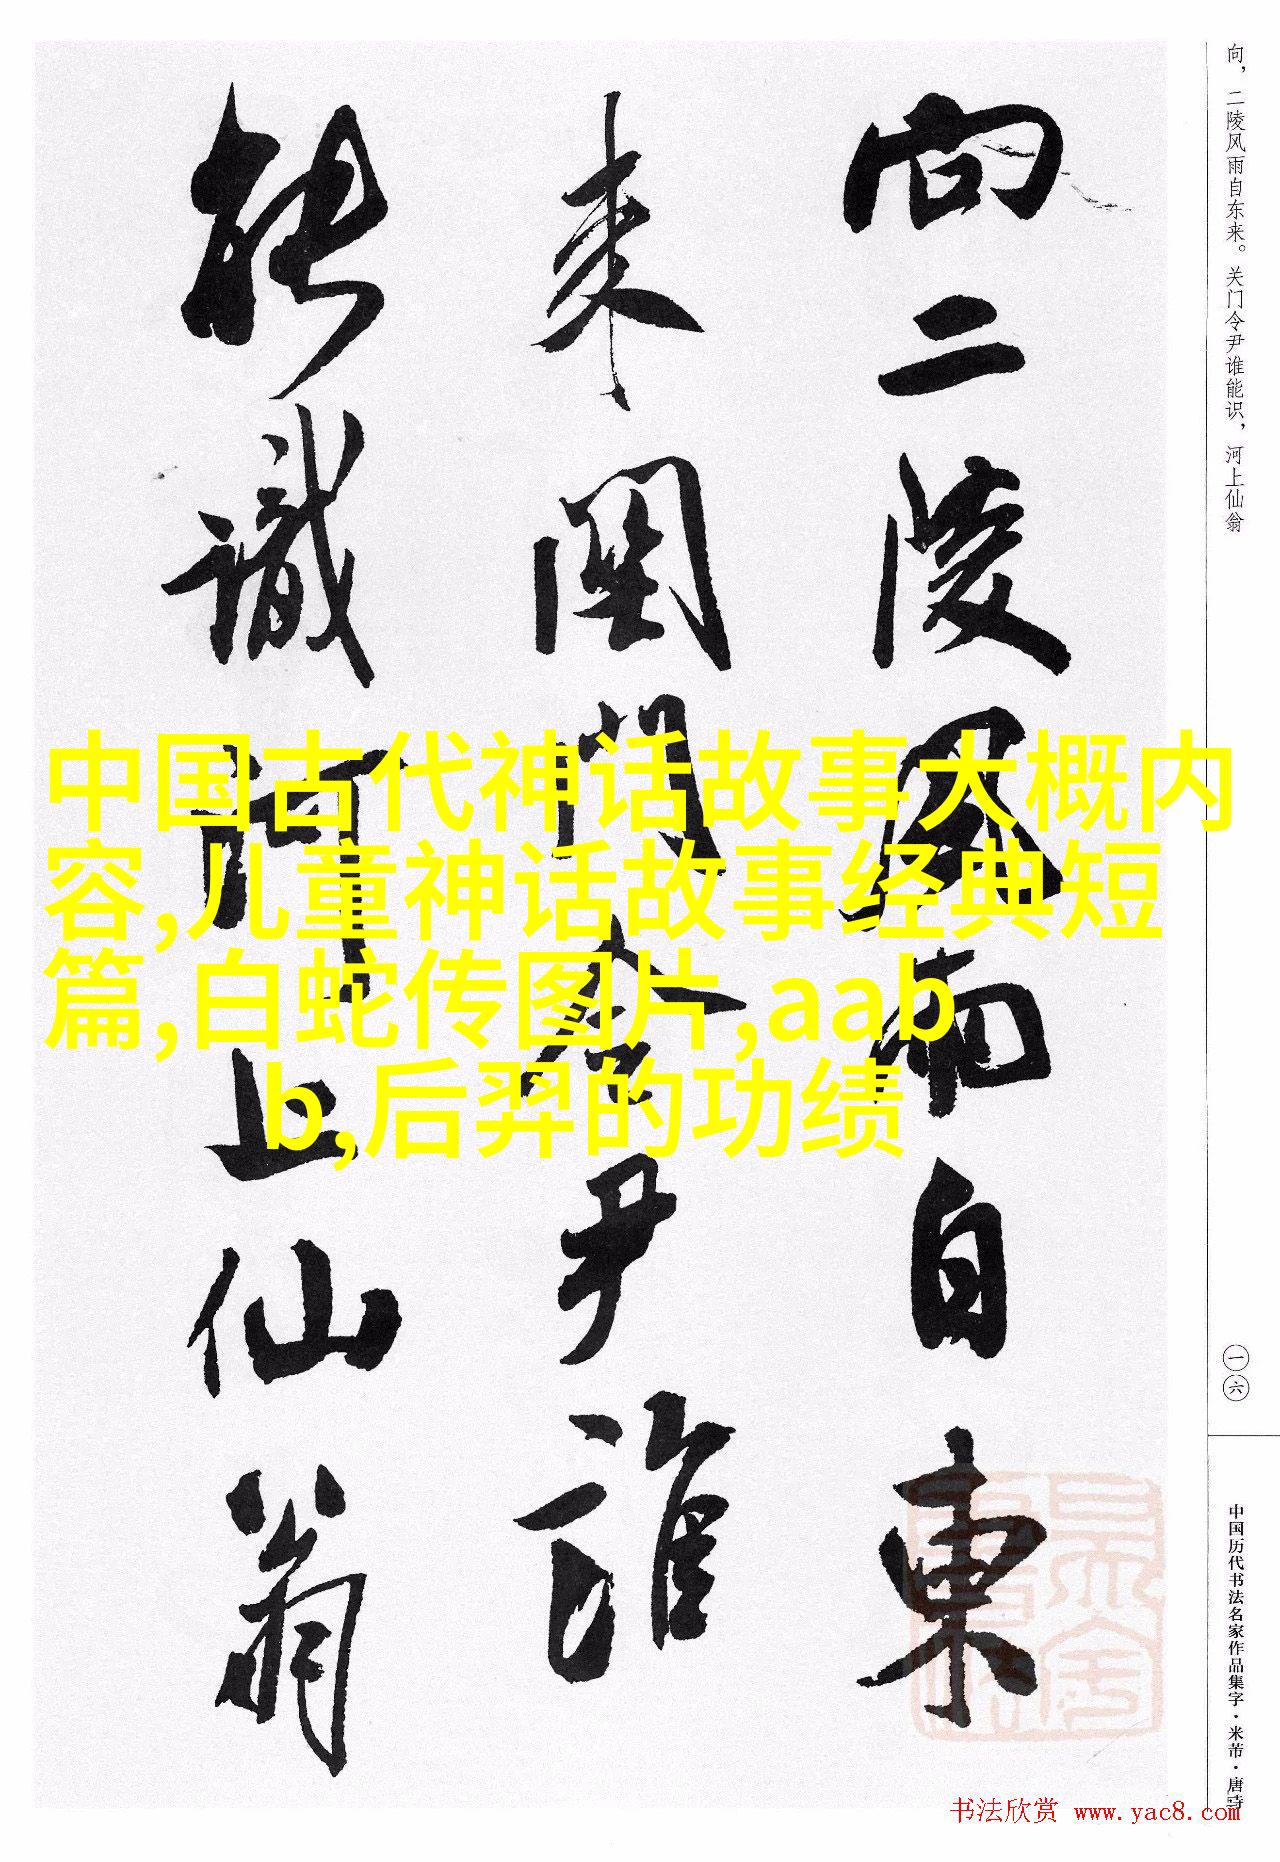 向，二陵风雨自东来。关门令尹谁能识，河上仙翁
向二陵風雨自東
来關門令尹誰
能識河上仙翁
中国古代神话故事大概内
容,儿童神话故事经典短
篇,白蛇传图片,aab
b,后羿的功绩
一六
中国历代书法名家作品集字·米芾·唐诗
书法欣赏 www.yac8.com